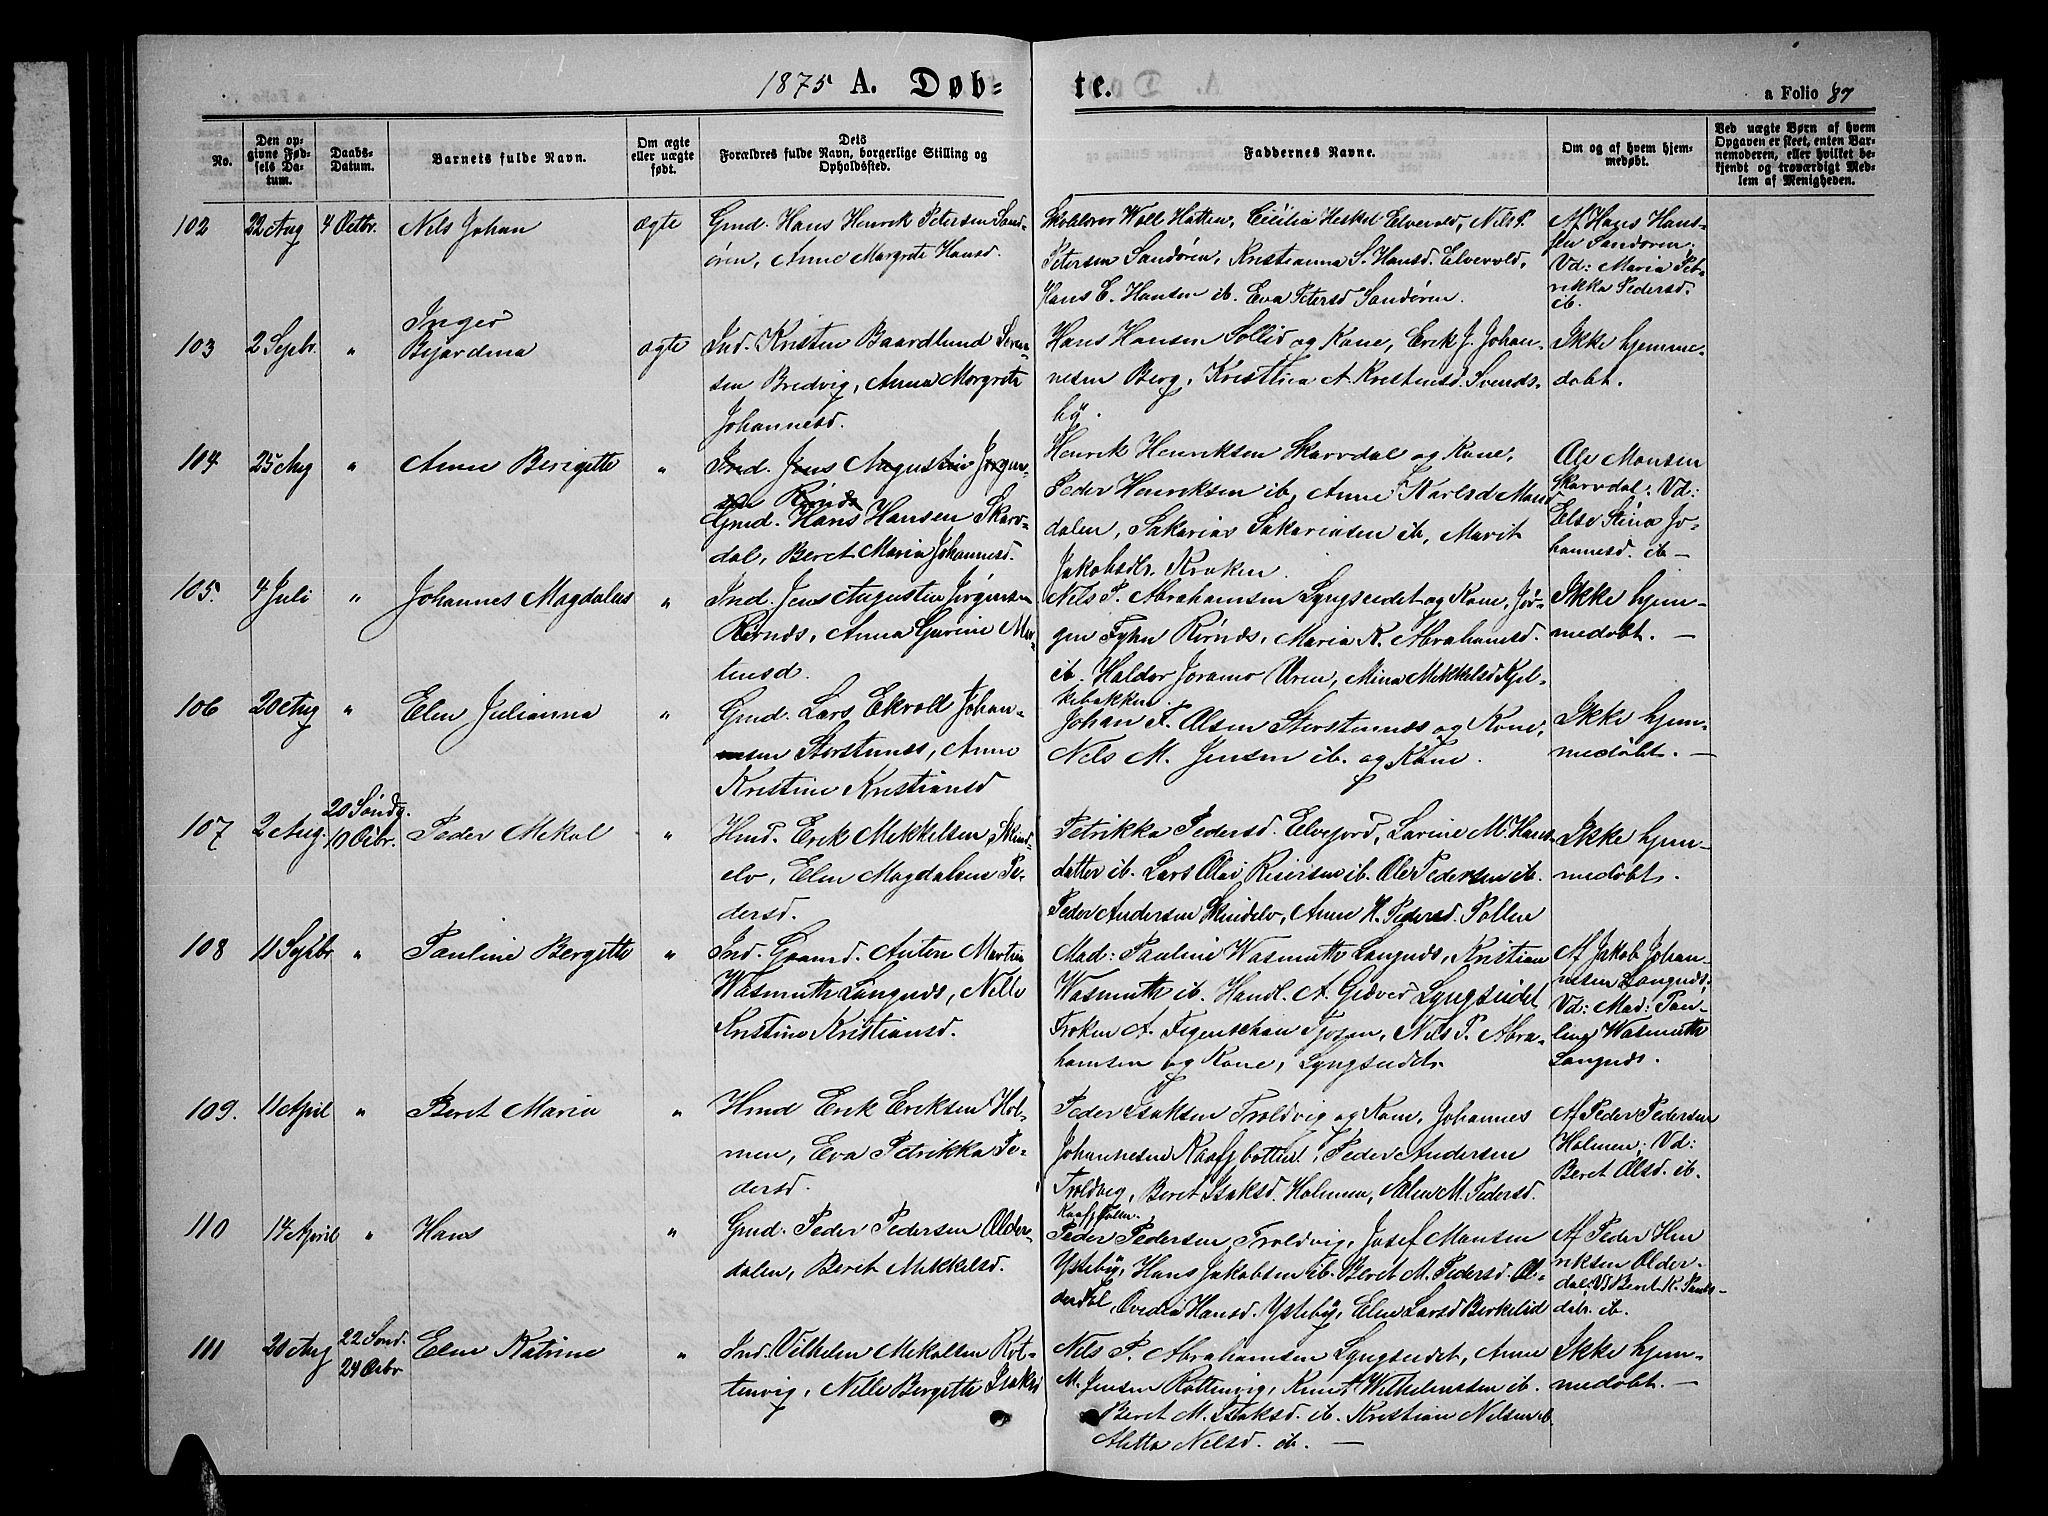 1875 A. Døb-
te.
a Folio 87
No.
Den op-
givne Fød-
sels Da-
tum.
Daabs-
Datum.
Barnets fulde Navn.
Om ægte
eller uægte
født.
Dets
Forældres fulde Navn, borgerlige Stilling og
Opholdssted.
Faddernes Navne.
Om og af hvem hjem-
medøbt.
Ved uægte Børn af hvem
Opgaven er skeet, enten Bar-
nemoderen, eller hvilket be-
kjendt og troværdigt Med-
lem af Menigheden.
102
22 Aug
4 Octbr.
Nels Johan
ægte
Gmd. Hans Henrik Petersen Sand-
ören, Anne Margrete Hansd.
Skolelærer Woll Hatten, Cecilia Heskel Elvevold, Nels P.
Petersen Sandören, Kristianna S. Hansd. Elvevold,
Hans E. Hansen ib. Eva Petersd Sandören.
Af Hans Han-
sen Sandören;
Vd: Maria Pet-
rikka Pedersd.
ib.
103
2 Sepbr.
"
Inger
Bejardina
ægte
Ind. Kristen Baardlund Soren-
sen Bredvig, Anna Margrete
Johannesd.
Hans Hansen Sollid og Kone, Erik J. Johan-
nesen Berg, Kristina A. Kristensd. Svends-
by.
Ikke hjemme-
dobt.
104
25 Aug
"
Anne Berigette
"
Ind. Jens Augustin Jørgen-
sen Rörnds
Gmd. Hans Hansen Skarv-
dal, Beret Maria Johannesd.
Henrik Henriksen Skarvdal og Kone,
Peder Henriksen ib, Anne Karlsd Man-
dalen, Sakarias Sakariasen ib, Marit
Jakobsdtr. Kroken.
Ole Monsen
Skarvdal, Vd:
Else Stina Jo-
hannesd. ib —
105.
4 Juli
"
Johannes Magdalus
"
Ind. Jens Augustin Jørgensen
Rörnds, Anna Gurine Mor-
tensd.
Nels P. Abrahamsen Lyngseidet og Kone, Jør-
gen Fyhn Rörnds, Maria K. Abrahamsd.
ib. Haldor Joramo Uren, Mina Mikkelsd Kjel-
kebakken.
Ikke hjem-
medøbt. —
106
20 Aug
"
Elen Julianna
"
Gmd. Lars Ekvold Johan-
sen Storstennes, Anne
Kristine Kristiansd
Johan F. Olsen Storstennes og Kone,
Nels M. Jensen ib. og Kone.
Ikke hjem-
medøbt. —
107
2 Aug.
20 Søndg.
10 Octbr.
Peder Mekal
"
Hmd. Erik Mikkelsen Skind-
elv, Elen Magdalena Pe-
dersd.
Petrikka Pedersd. Elvefjord, Lavine M. Hans-
datter ib. Lars Olai Reiersen ib. Ole Pedersen ib.
Peder Andersen Skindelv, Anne H. Pedersd. Pollen
Ikke hjem-
medøbt.
108
11 Septbr
"
Pauline Bergette
"
Ind. Gaamd. Anton Martin
Wasmuth Langnds, Nelle
Kristine Kristiansd.
Mad: Pauline Wasmuth Langnds, Kristian
Wasmuth ib. Handl. A. Giæver Lyngseidet
Froken A. Figenschau Tjosen, Nels P. Abra-
hamsen og Kone, Lyngseidet.
Af Jakob Johan-
nesen Langnds;
Vd: Mad: Pau-
line Wasmuth
Langnds.
109.
11 April
"
Beret Maria
"
Hmd Erik Eriksen Hol-
men, Eva Petrikka Pe-
dersd.
Peder Isaksen Troldvig og Kone, Johannes
Johannesen Kaafjbotten, Peder Andersen
Troldvig, Beret Isaksd. Holmen, Elen M. Pedersd.
Af Peder Pedersen
Holmen; Vd:
Beret Olsd. ib.
110
14 April
"
Hans
"
Gmd. Peder Pedersen Older-
dalen, Beret Mikkelsd.
Peder Pedersen Troldvig, Josef Monsen
Ysteby, Hans Jakobsen ib. Beret M. Pedersd. Ol-
derdal, Ovedia Hansd. Ysteby, Elen Larsd Berkelid
Af Peder Hen
riksen Older-
dal; Vd Beret K.
ib.
111
20 Aug
22 Sond.
24 Octbr
Elen Katrine
"
Ind. Vilhelm Mekalsen Rot-
tenvig, Nelle Bergette Isaksd
Nels P. Abrahamsen Lyngseidet, Anne
M. Jensen Rottenvig, Knut Wilhelmssen ib.
Beret M. Isaksd. ib. Kristian Nilsen ib.
Aletta Nelsd. ib. —
Ikke hjem-
medøbt. —